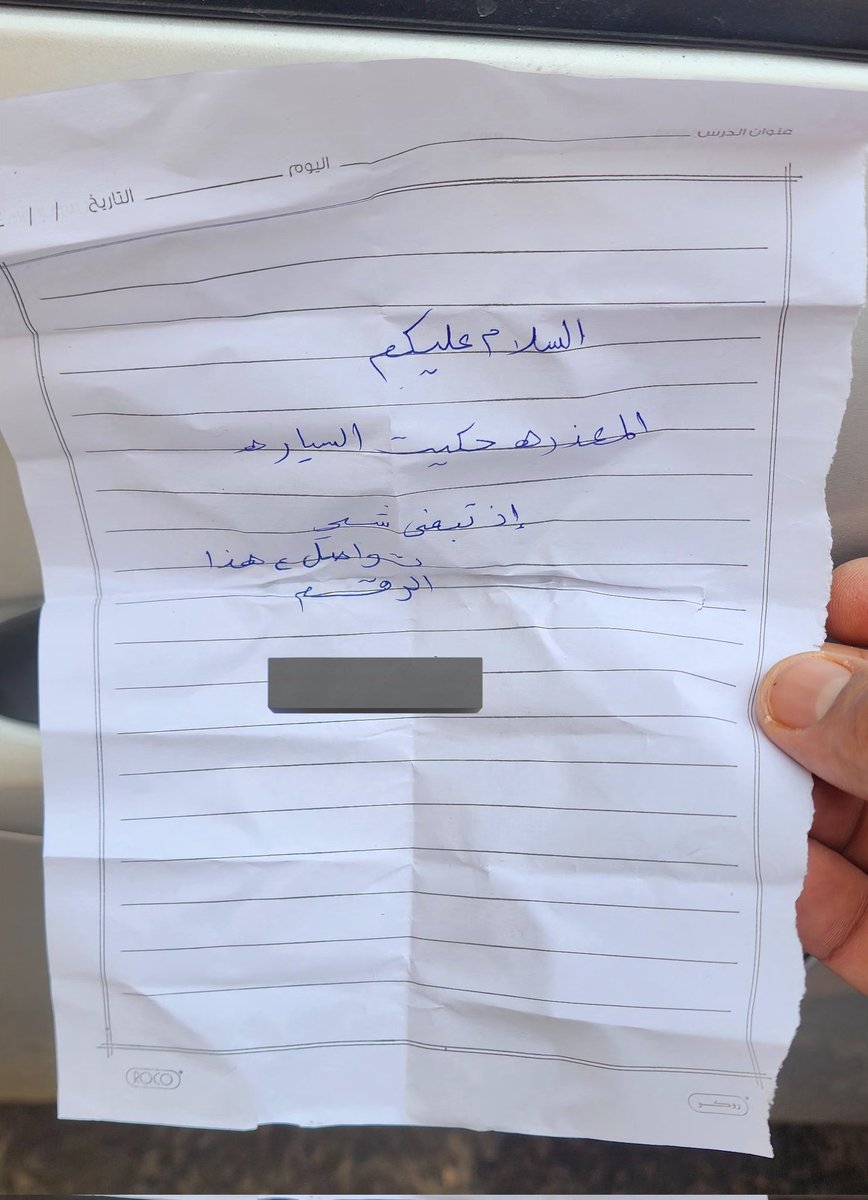 عنوان الدرس
اليوم
التاريخ / /
السلام عليكم
المعذره حكيت السياره
إذ تبغى شي
تواصل ع هذا
الرقم
ROCO
روكو